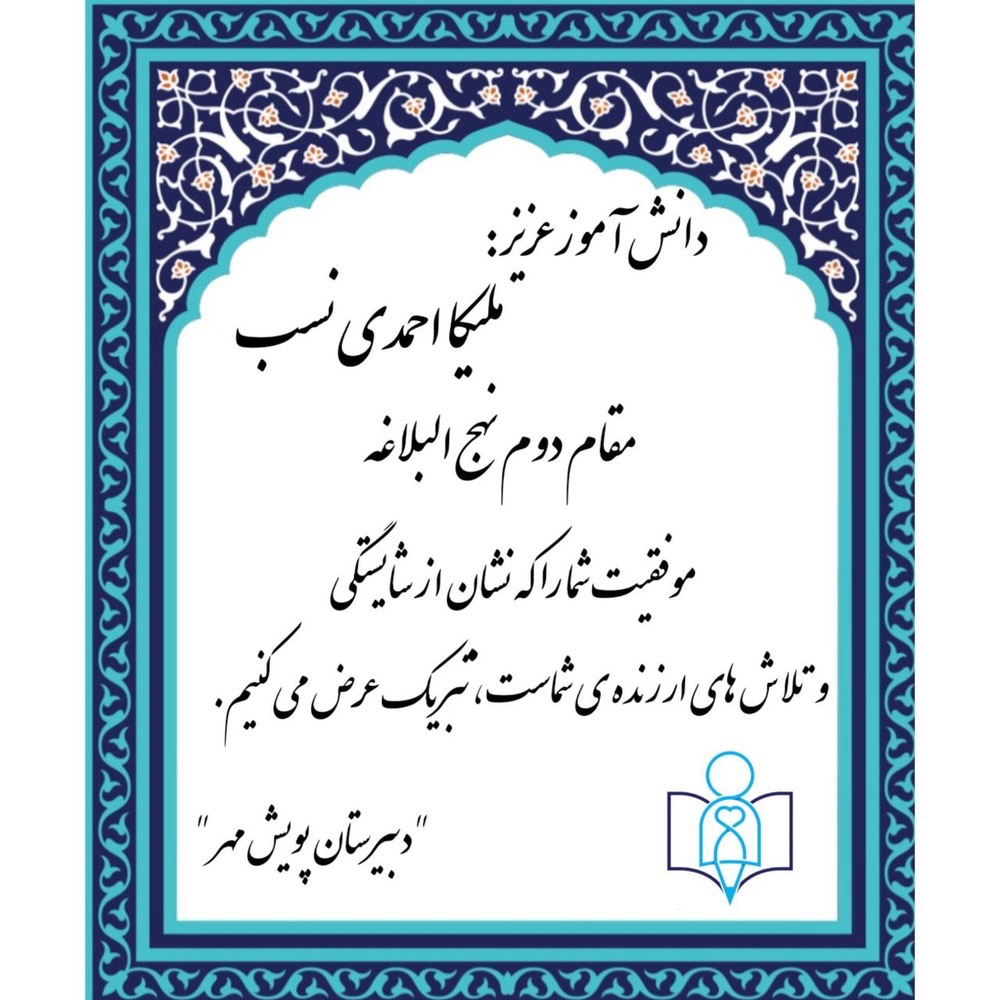 دانش آموز عزیز:
ملیکا احمدی نسب
مقام دوم نهج البلاغه
موفقیت شما را که نشان از شایستگی
و تلاش های ارزنده ی شماست، تبریک عرض می کنیم.
"دبیرستان پویش مهر"